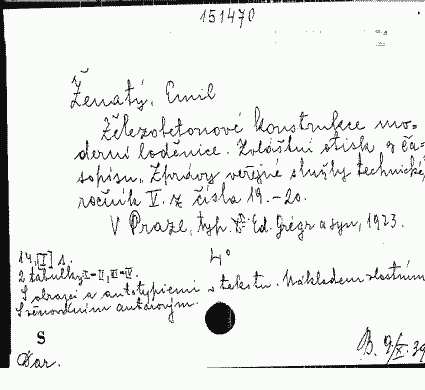 151470
Ženatý, Emil
Železobetonové konstrukce mo-
derní loděnice. Zvláštní otisk z ča-
sopisu „Zprávy veřejné služby technické,
ročník V. z čísla 19.-20.
V Praze, typ. Ed. Grégr a syn, 1923.
14, [I] s. 4°
2 tabulky I-II, III-IV.
S obrazci a autotypiemi v tekstu. Nákladem vlastním
S věnováním autorovým.
S
Dar.
B. 9/X. 39